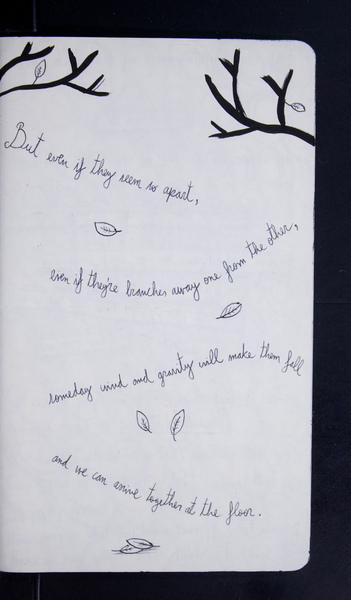 But even if they seem so apart,
even if they're branches away one from the other,
someday wind and gravity will make them fall
and we can arrive together at the floor.